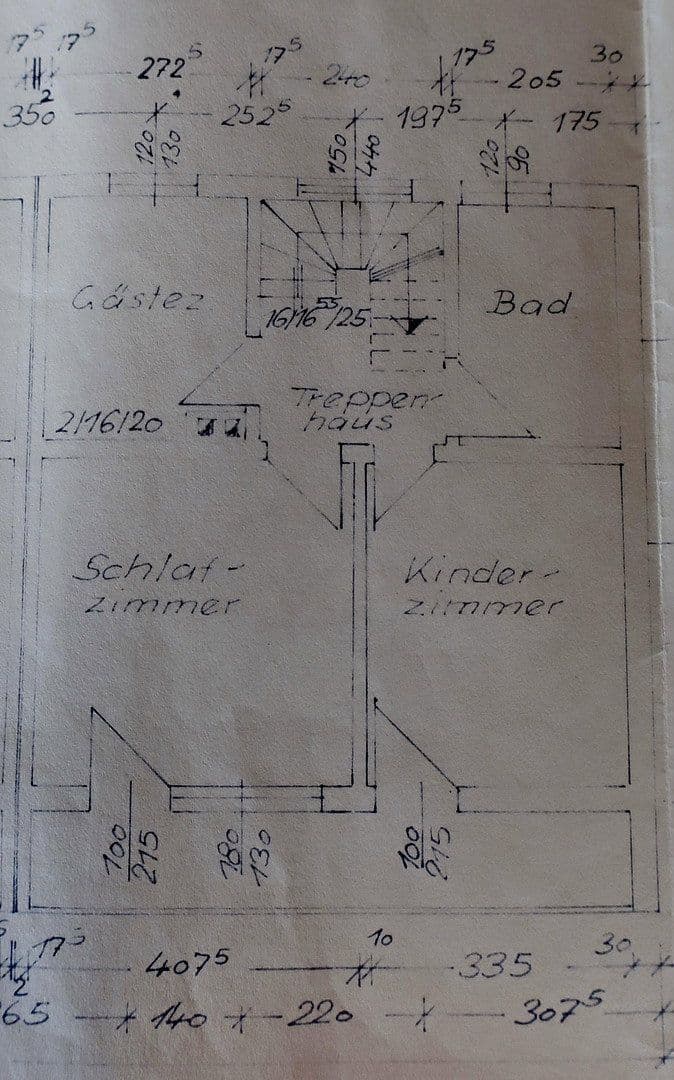 17⁵ 17⁵ 272⁵ 17⁵ 240 17⁵ 205 30
350 2 252⁵ 197⁵ 175
120 130
150 440
120 90
Gästez
16/16⁵⁵/25
Bad
2/16/20
Treppen-
haus
Schlaf-
zimmer
Kinder-
zimmer
100 215
180 130
100 215
17⁵ 407⁵ 10 335 30
2
65 140 220 307⁵